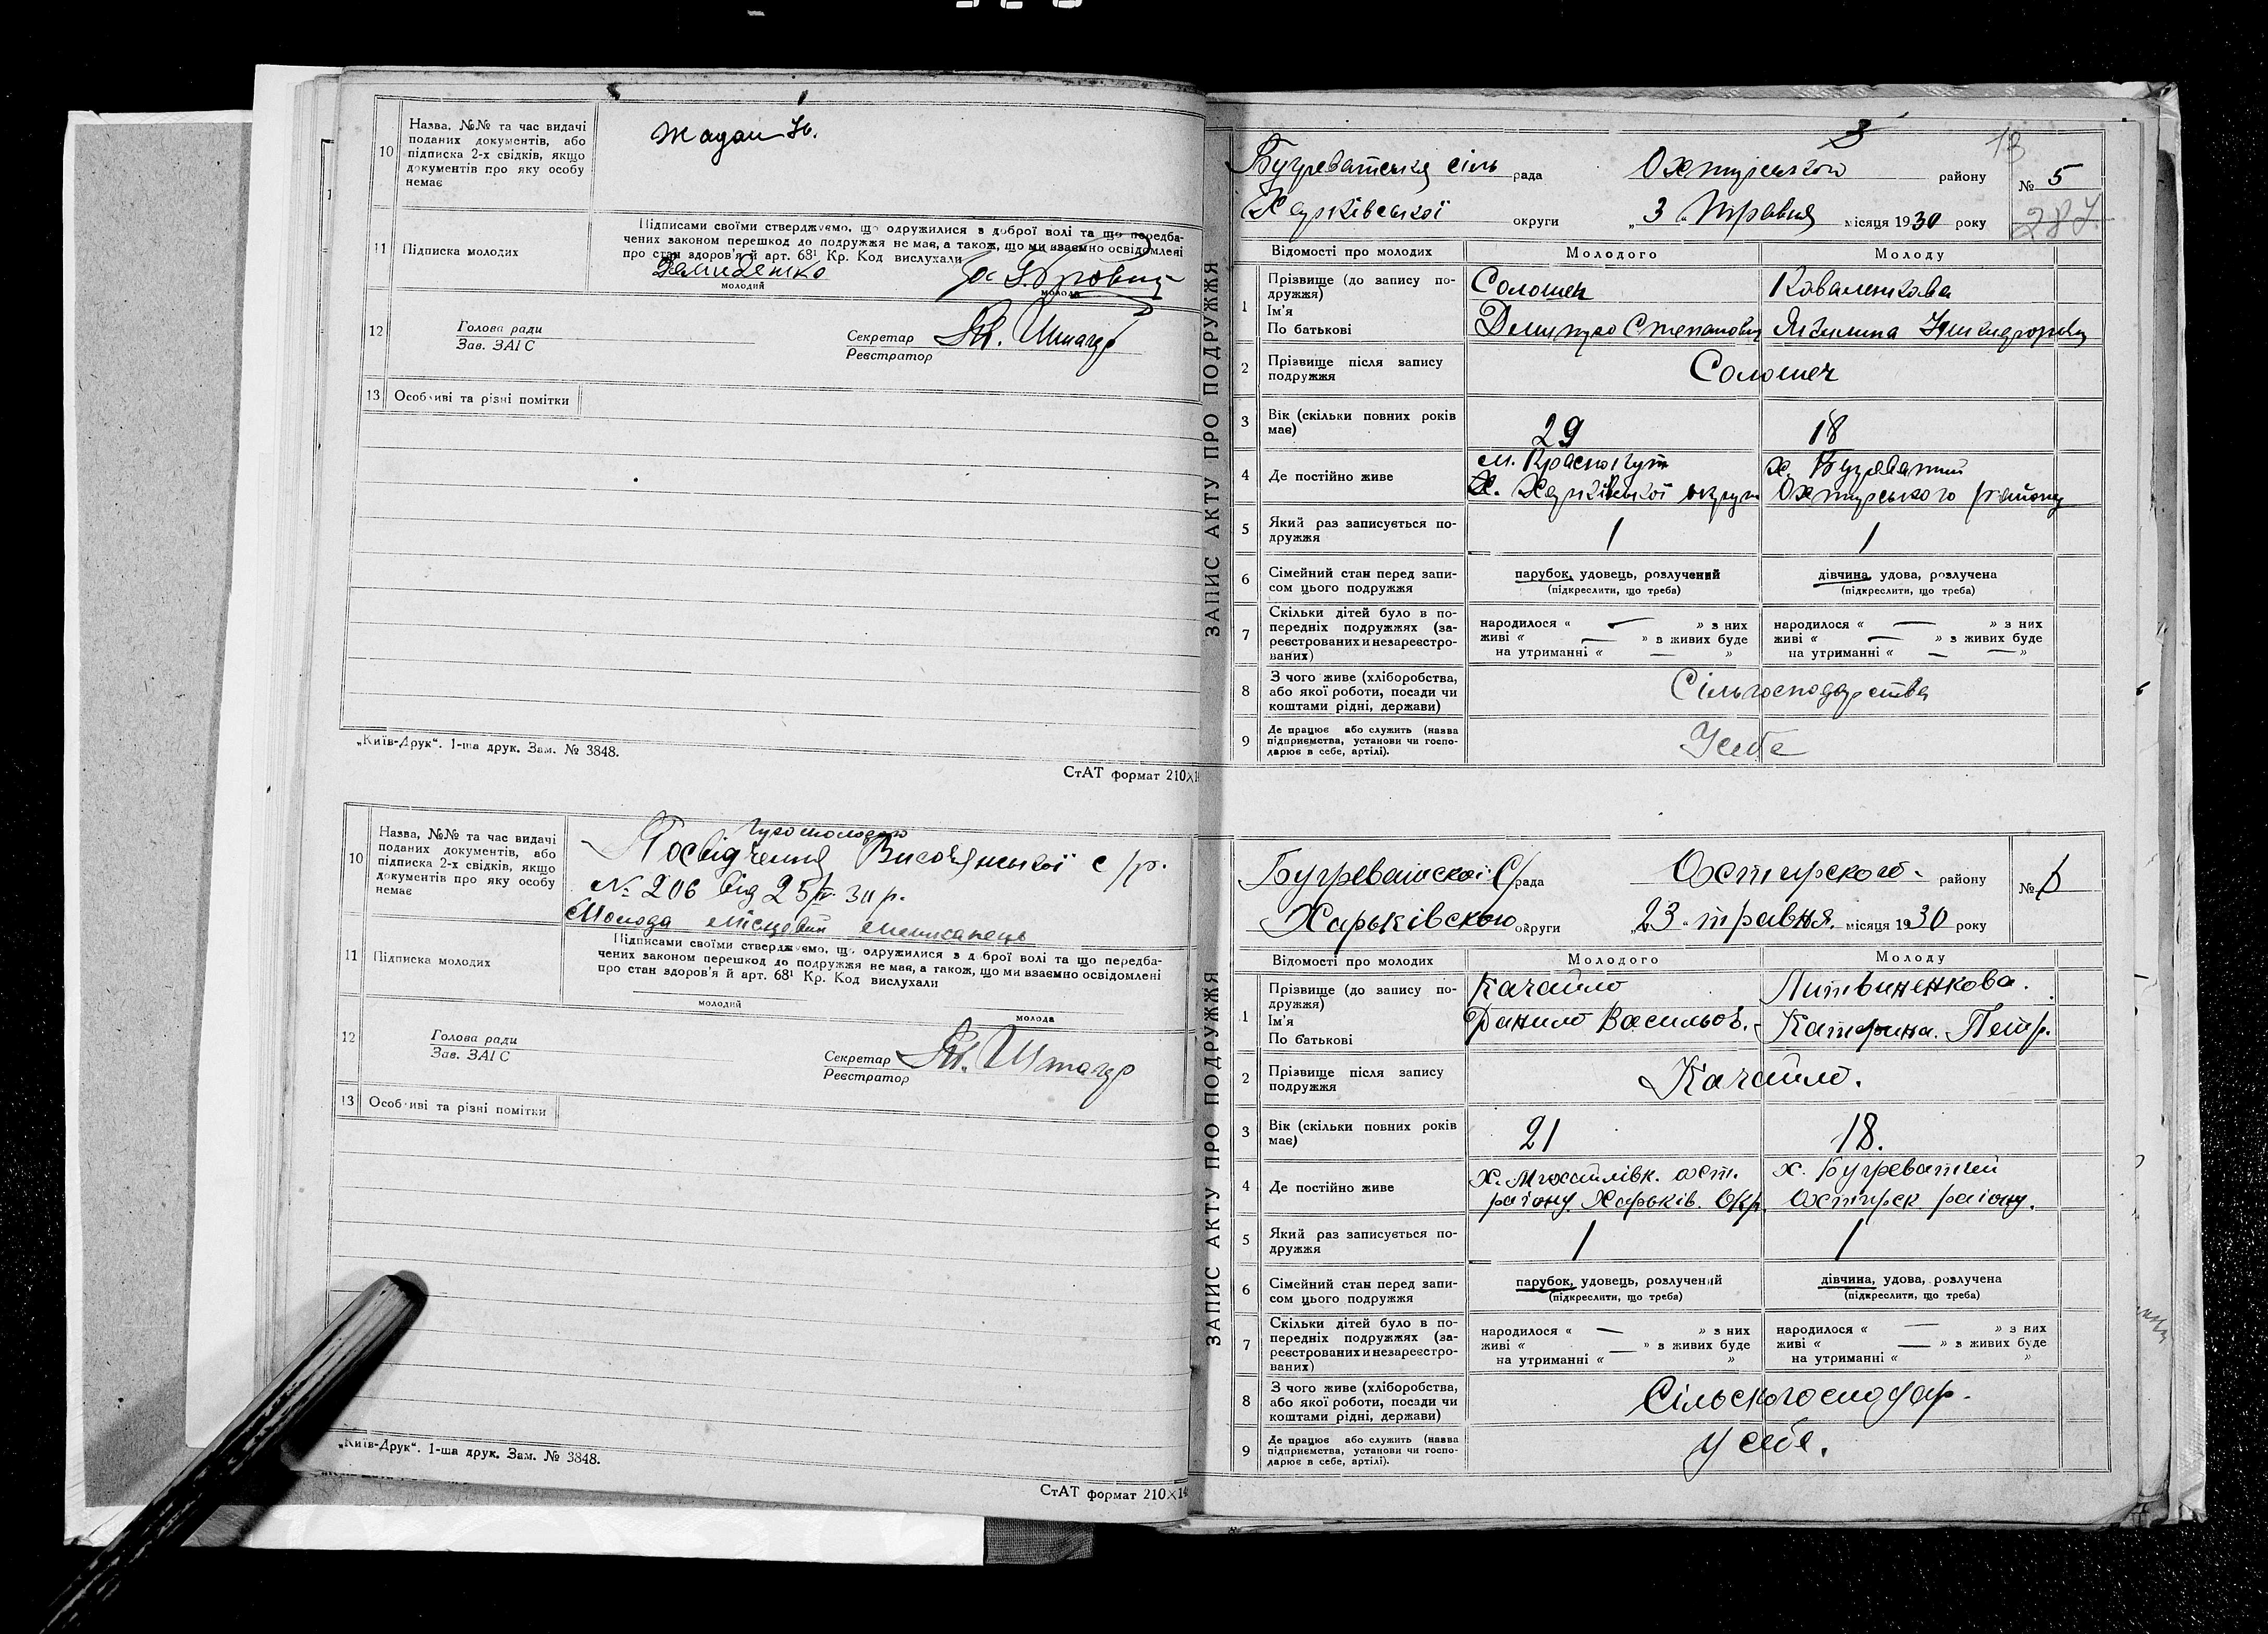 10
Назва, №№ та час видачі
поданих документів, або
підписка 2-х свідків, якщо
документів про яку особу
немає
Жадан
11
Підписка молодих
Підписами своїми стверджуємо, що одружилися з доброї волі та що передба-
чених законом перешкод до подружжя не має, а також, що ми взаємно освідомлені
про стан здоров'я й арт. 68¹ Кр. Код вислухали
Демиденко
молодий
молода
12
Голова ради
Зав. ЗАГС
Секретар
Реєстратор
13
Особливі та різні помітки
„Київ-Друк“. 1-ша друк. Зам. № 3848.
СтАТ формат 210×14
10
Назва, №№ та час видачі
поданих документів, або
підписка 2-х свідків, якщо
документів про яку особу
немає
Посвідчення Височанської с/р.
№ 206 від 25/IV 30 р.
Молода місцевий мешканець
11
Підписка молодих
Підписами своїми стверджуємо, що одружилися з доброї волі та що передба-
чених законом перешкод до подружжя не має, а також, що ми взаємно освідомлені
про стан здоров'я й арт. 68¹ Кр. Код вислухали
молодий
молода
12
Голова ради
Зав. ЗАГС
Секретар
Реєстратор
13
Особливі та різні помітки
„Київ-Друк“. 1-ша друк. Зам. № 3848.
СтАТ формат 210×14
ЗАПИС АКТУ ПРО ПОДРУЖЖЯ
3
13
Бугреватська сіль рада Охтирського району № 5
Харківської округи „3“ Травня місяця 1930 року
287
Відомості про молодих
Молодого
Молоду
1
Прізвище (до запису по-
дружжя)
Ім'я
По батькові
Солошек
Степанович
Коваленкова
2
Прізвище після запису
подружжя
Солошек
3
Вік (скільки повних років
має)
29
18
4
Де постійно живе
м. Краснокут
Харківської округи
х. Бугреватий
Охтирського району
5
Який раз записується по-
дружжя
1
1
6
Сімейний стан перед запи-
сом цього подружжя
парубок, удовець, розлучений
(підкреслити, що треба)
дівчина, удова, розлучена
(підкреслити, що треба)
7
Скільки дітей було в по-
передніх подружжях (за-
реєстрованих и незареєстро-
ваних)
народилося « — » з них
живі « — » з живих буде
на утриманні « — »
народилося « — » з них
живі « — » з живих буде
на утриманні « — — »
8
З чого живе (хліборобства,
або якої роботи, посади чи
коштами рідні, держави)
Сільгосподарства
9
Де працює або служить (назва
підприємства, установи чи госпо-
дарює в себе, артілі).
У себе
ЗАПИС АКТУ ПРО ПОДРУЖЖЯ
Бугреватскої С/рада Охтирского району №
Харьківскою округи „23“ травня. місяця 1930 року
Відомості про молодих
Молодого
Молоду
1
Прізвище (до запису по-
дружжя)
Ім'я
По батькові
Качайло
Данило Васильов.
Литвиненкова.
Катерина. Петр.
2
Прізвище після запису
подружжя
Качайло.
3
Вік (скільки повних років
має)
21
18.
4
Де постійно живе
х. Михайлівк. охт.
району Харьків. Окр.
х. Бугреватий
Охтирск району.
5
Який раз записується по-
дружжя
1
1
6
Сімейний стан перед запи-
сом цього подружжя
парубок, удовець, розлучений
(підкреслити, що треба)
дівчина, удова, розлучена
(підкреслити, що треба)
7
Скільки дітей було в по-
передніх подружжях (за-
реєстрованих и незареєстро-
ваних)
народилося « — » з них
живі « — » з живих буде
на утриманні « »
народилося « — » з них
живі « — » з живих буде
на утриманні « »
8
З чого живе (хліборобства,
або якої роботи, посади чи
коштами рідні, держави)
Сільскогосподар.
9
Де працює або служить (назва
підприємства, установи чи госпо-
дарює в себе, артілі).
у себе.